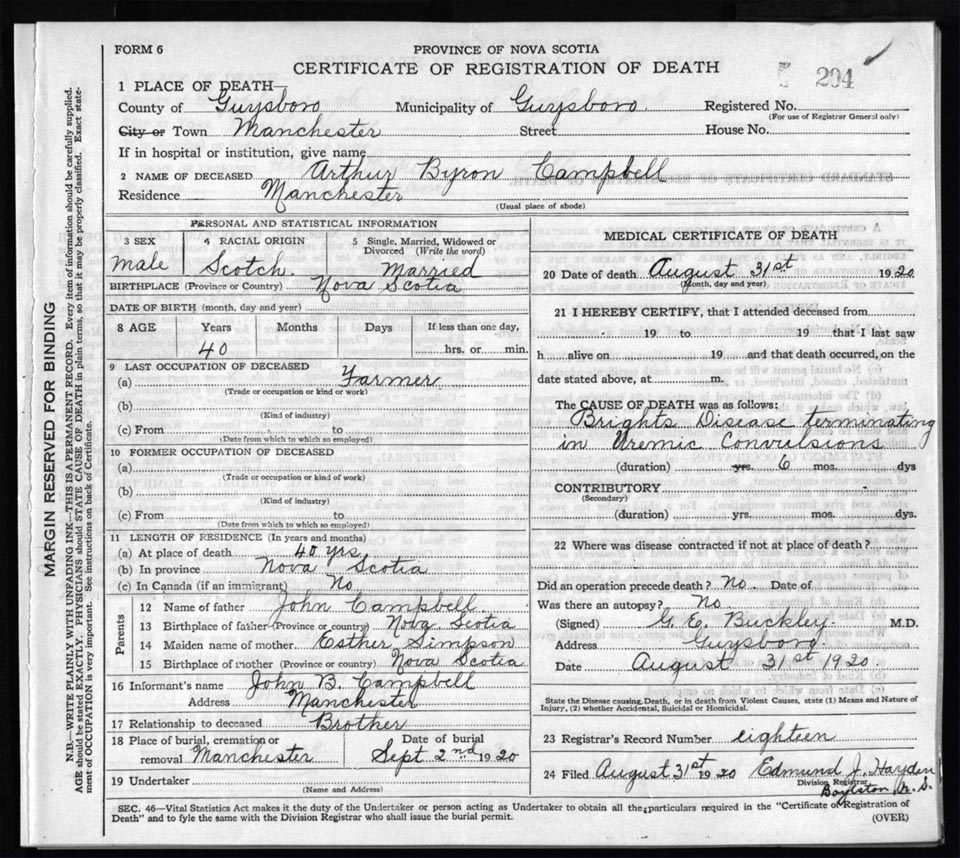 FORM 6
PROVINCE OF NOVA SCOTIA
CERTIFICATE OF REGISTRATION OF DEATH
204
1 PLACE OF DEATH—
County of Guysboro Municipality of Guysboro. Registered No.
(For use of Registrar General only)
City or Town Manchester Street House No.
If in hospital or institution, give name
2 NAME OF DECEASED Arthur Byron Campbell
Residence Manchester
(Usual place of abode)
PERSONAL AND STATISTICAL INFORMATION
3 SEX 4 RACIAL ORIGIN 5 Single, Married, Widowed or Divorced (Write the word)
Male Scotch. Married
BIRTHPLACE (Province or Country) Nova Scotia
DATE OF BIRTH (month, day and year)
8 AGE Years Months Days If less than one day,
40 hrs. or min.
9 LAST OCCUPATION OF DECEASED
(a) Farmer
(Trade or occupation or kind or work)
(b)
(Kind of industry)
(c) From to
(Date from which to which so employed)
10 FORMER OCCUPATION OF DECEASED
(a)
(Trade or occupation or kind of work)
(b)
(Kind of industry)
(c) From to
(Date from which to which so employed)
11 LENGTH OF RESIDENCE (In years and months)
(a) At place of death 40 yrs.
(b) In province Nova Scotia
(c) In Canada (if an immigrant) No
Parents
12 Name of father John Campbell.
13 Birthplace of father (Province or country) Nova Scotia
14 Maiden name of mother Esther Simpson
15 Birthplace of mother (Province or country) Nova Scotia
16 Informant's name John B. Campbell
Address Manchester
17 Relationship to deceased Brother
18 Place of burial, cremation or removal Manchester Date of burial Sept 2nd 1920
19 Undertaker
(Name and Address)
MEDICAL CERTIFICATE OF DEATH
20 Date of death August 31st 1920
(Month, day and year)
21 I HEREBY CERTIFY, that I attended deceased from
19 to 19 that I last saw
h alive on 19 and that death occurred, on the
date stated above, at m.
The CAUSE OF DEATH was as follows:
Brights Disease terminating
in Uremic Convulsions
(duration) yrs. 6 mos. dys
CONTRIBUTORY
(Secondary)
(duration) yrs. mos. dys.
22 Where was disease contracted if not at place of death?
Did an operation precede death? No Date of
Was there an autopsy? No
(Signed) G. E. Buckley. M.D.
Address Guysboro
Date August 31st 1920.
State the Disease causing Death, or in death from Violent Causes, state (1) Means and Nature of
Injury, (2) whether Accidental, Suicidal or Homicidal.
23 Registrar's Record Number eighteen
24 Filed August 31st 1920 Edmund J. Hayden
Division Registrar
Boylston N. S.
SEC. 46—Vital Statistics Act makes it the duty of the Undertaker or person acting as Undertaker to obtain all the particulars required in the "Certificate of Registration of
Death" and to fyle the same with the Division Registrar who shall issue the burial permit.
(OVER)
MARGIN RESERVED FOR BINDING
N.B.—WRITE PLAINLY WITH UNFADING INK—THIS IS A PERMANENT RECORD. Every item of information should be carefully supplied.
AGE should be stated EXACTLY. PHYSICIANS should STATE CAUSE OF DEATH in plain terms, so that it may be properly classified. Exact state-
ment of OCCUPATION is very important. See instructions on back of Certificate.